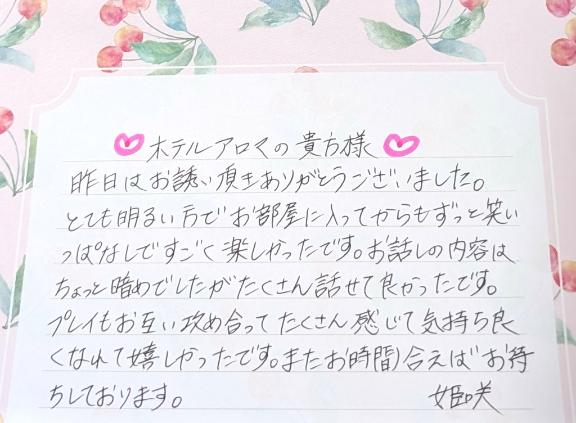 ホテルアロマの貴方様
昨日はお誘い頂きありがとうございました。
とても明るい方でお部屋に入ってからもずっと笑い
っぱなしですごく楽しかったです。お話しの内容は
ちょっと暗めでしたがたくさん話せて良かったです。
プレイもお互い攻め合ってたくさん感じて気持ち良
くなれて嬉しかったです。またお時間合えばお待
ちしております。 姫咲